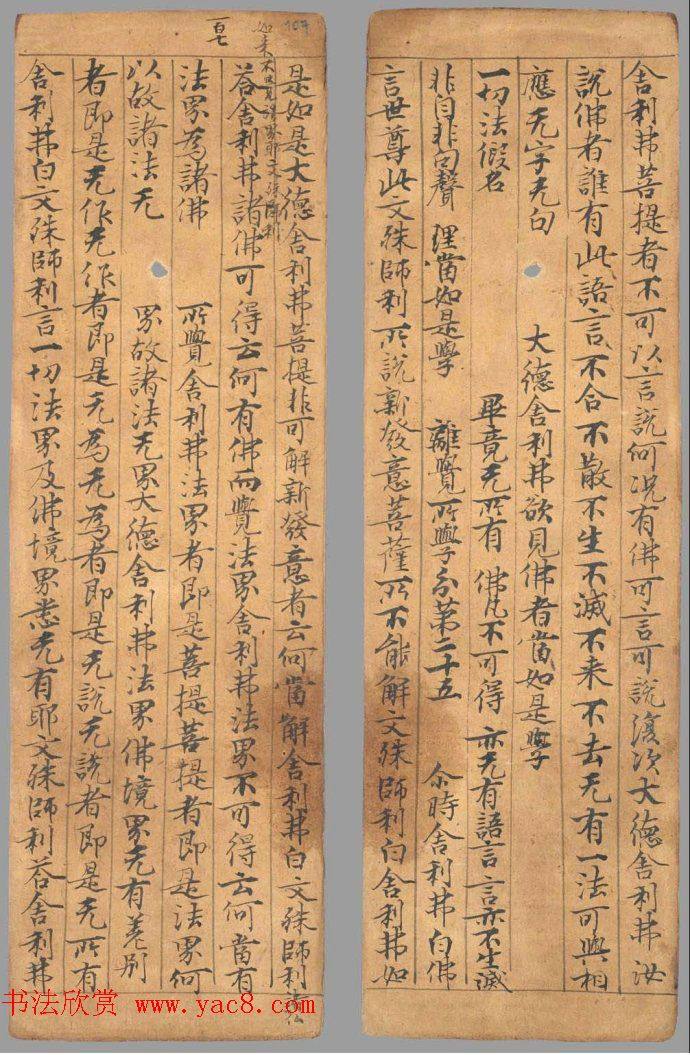 舍利弗菩提者不可以言說何況有佛可言可說復次大德舍利弗汝
說佛者誰有此語言不合不散不生不滅不来不去无有一法可與相
應无字无句 大德舍利弗欲見佛者當如是學
一切法假名 畢竟无所有 佛凡不可得 亦无有語言 言亦不生滅
非自非句聲 理當如是學 離覺所學分第二十五 尒時舍利弗白佛
言世尊此文殊師利所說新發意菩薩所不能解文殊師利白舍利弗如
107
是如是大德舍利弗菩提非可解新發意者云何當解舍利弗白文殊師利
如来不覺 界耶文殊師利
荅舍利弗諸佛可得云何有佛而覺法界舍利弗法界不可得云何當有
法界為諸佛 所覺舍利弗法界者即是菩提菩提者即是法界何
以故諸法无 界故諸法无界大德舍利弗法界佛境界无有差別
者即是无作无作者即是无為无為者即是无說无說者即是无所有
舍利弗白文殊師利言一切法界及佛境界悉无有耶文殊師利荅舍利弗
书法欣赏 www.yac8.com